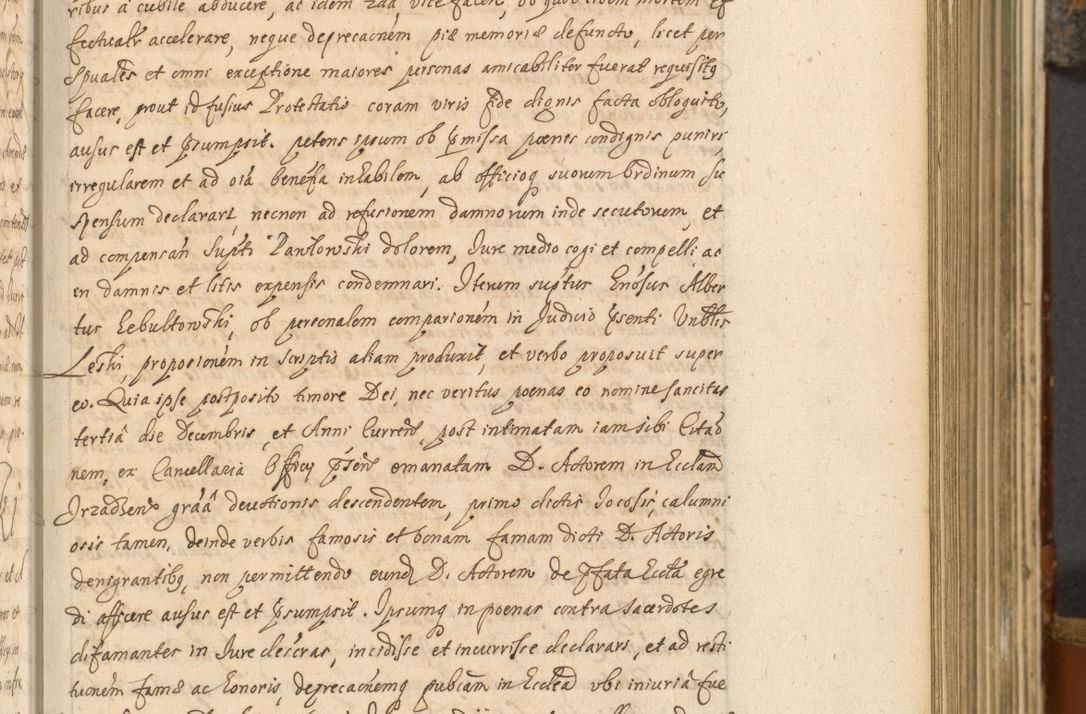 ribus a cubile abducere, ac idem
fectualr accelerare, neque deprecacnem piæ memoriæ defuncto, licet per
spuales et omni exceptione maiores personas amicabiliter fuerat requisitq
facere, prout id fusius Protestatio coram viris fide dignis facta obloquitr,
ausus est et psumpsit. petens ipsum ob pmissa poenis condignis puniri,
irregularem et ad oia benefia inhabilem, ab officioq suorum Ordinum su
spensum declarari, necnon ad refusionem damnorum inde secutorum, et
ad compensan supti Pawlowski dolorem, Iure medio cogi et compelli, ac
in damnis et litis expensis condemnari. Iterum suptus Gnosus Alber
tus Cebultowski, ob personalem comparionem in Judicio psenti Vnbtlis
Leski, proposionem in scriptis aliam produxit, et verbo proposuit super
eo. Quia ipse postposito timore Dei, nec veritus poenas eo nomine sancitas
tertiâ die Decembris, et Anni Curren, post intimatam iam sibi Cita
nem, ex Cancellaria Officij psen emanatam D. Actorem in Ecclam
Irzadzen grââ devotionis descendentem, primo dictis Jocosis, calumni
osis tamen, deinde verbis famosis et bonam famam dicti D. Actoris
denigrantibq, non permittendo eund D. Actorem de pfata Eccla egre
di afficere ausus est et psumpsit. Ipsumq in poenas contra sacerdotes
difamantes in Iure descras, incidisse et incurrisse declarari, et ad resti
tucnem famæ ac honoris, deprecacnemq publcam in Ecclea vbi iniuria fue